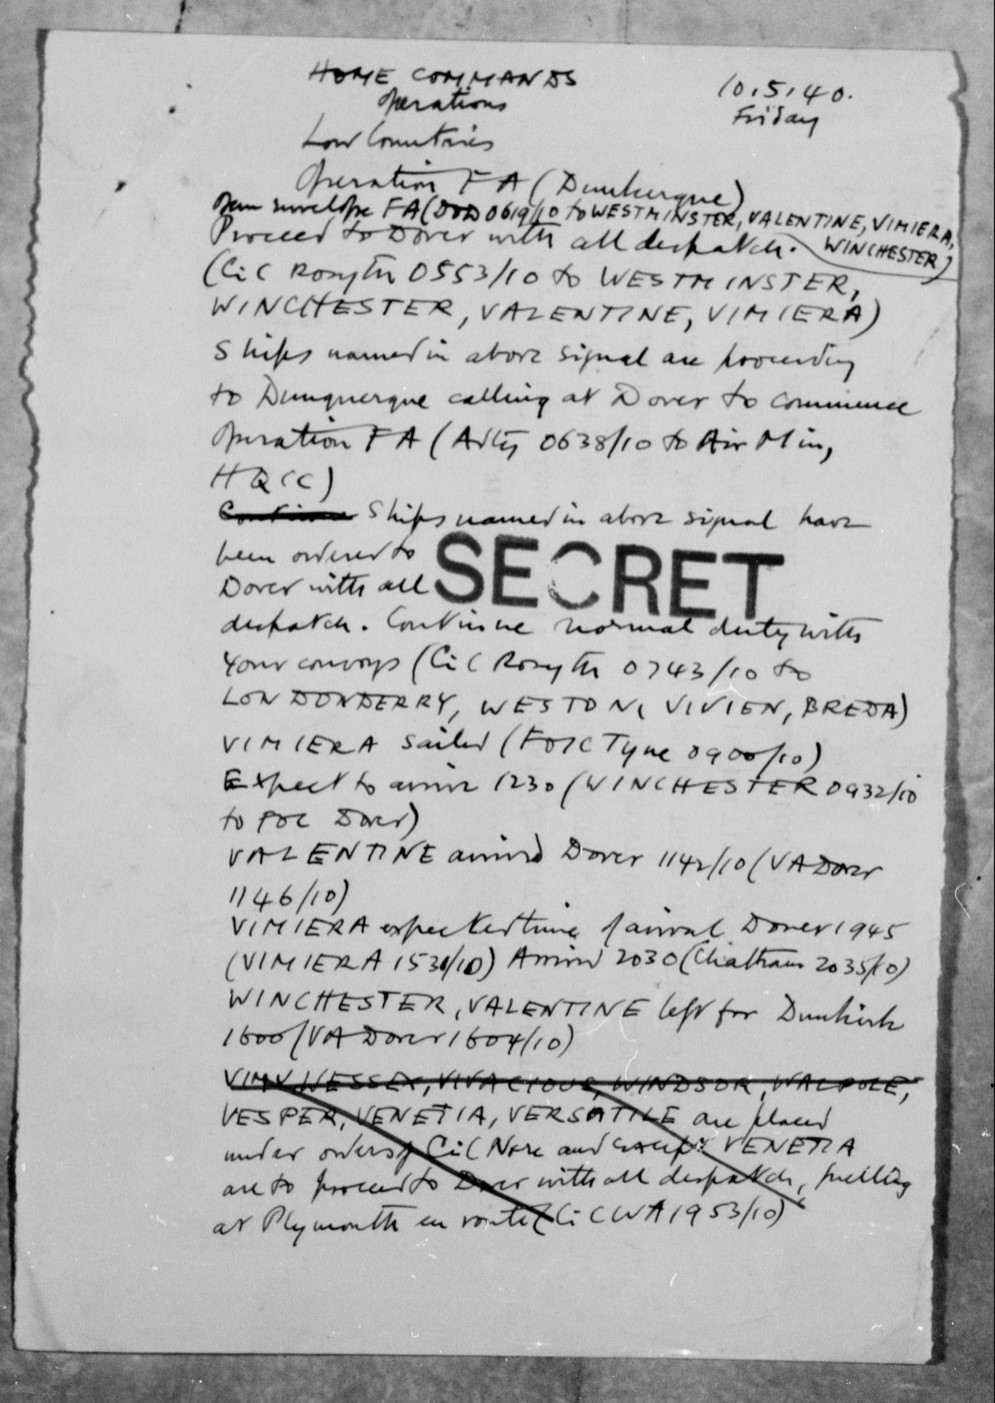 HOME COMMANDS
Operations
10.5.40.
Friday
Low Countries
Operation FA (Dunkerque)
Open envelope FA (DOD 0619/10 to WESTMINSTER, VALENTINE, VIMIERA,
WINCHESTER)
Proceed to Dover with all despatch.
(CinC Rosyth 0553/10 to WESTMINSTER,
WINCHESTER, VALENTINE, VIMIERA)
Ships named in above signal are proceeding
to Dunquerque calling at Dover to commence
Operation FA (Adty 0638/10 to Air Min,
HQCC)
Continue Ships named in above signal have
been ordered to
SECRET
Dover with all
despatch. Continue normal duty with
your convoys (CinC Rosyth 0743/10 to
LONDONDERRY, WESTON, VIVIEN, BREDA)
VIMIERA sailed (FOIC Tyne 0900/10)
Expect to arrive 1230 (WINCHESTER 0932/10
to FOC Dover)
VALENTINE arrived Dover 1142/10 (VA Dover
1146/10)
VIMIERA expected time of arrival Dover 1945
(VIMIERA 1530/10) Arrived 2030 (Chatham 2035/10)
WINCHESTER, VALENTINE left for Dunkirk
1600 (VA Dover 1604/10)
VIMY WESSEX, VIVACIOUS, WINDSOR, WALPOLE,
VESPER, VENETIA, VERSATILE are placed
under orders of CinC Nore and except VENETIA
are to proceed to Dover with all despatch, fuelling
at Plymouth en route (CinCWA 1953/10)